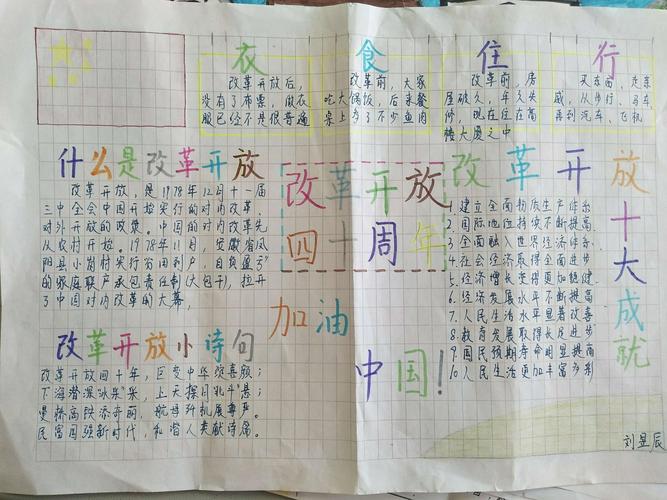 衣
改革开放后，
没有了布票，做衣
服已经不是很普遍
食
改革前，大家
吃大锅饭，后来餐
桌上多了不少鱼肉
住
改革前，房
屋破久，年久失
修，现在住在高
楼大厦之中
行
买东西，走亲
戚，从步行、马车
再到汽车、飞机
什么是改革开放
改革开放，是1978年12月十一届
三中全会中国开始实行的对内改革、
对外开放的政策。中国的对内改革先
从农村开始。1978年11月，安徽省凤
阳县小岗村实行分田到户，自负盈亏
的家庭联产承包责任制(大包干)，拉开
了中国对内改革的大幕。
改革开放
四十周年
加油
中国!
改革开放小诗句
改革开放四十年，巨变中华绽喜颜；
下海潜深冰采，上天探月北斗悬；
桥高铁添奇丽，航母歼机展尊严。
民富国强新时代，和谐人类献诗篇。
改革开放十大成就
1.建立全面物质生产体系
2.国际地位持续不断提高
3.全面融入世界经济体系
4.社会经济取得全面进步
5.经济增长变得更加稳健
6.经济发展水平不断提高
7.人民生活水平显著改善
8.教育发展取得长足进步
9.国民预期寿命明显提高
10.人民生活更加丰富多彩
刘昱辰